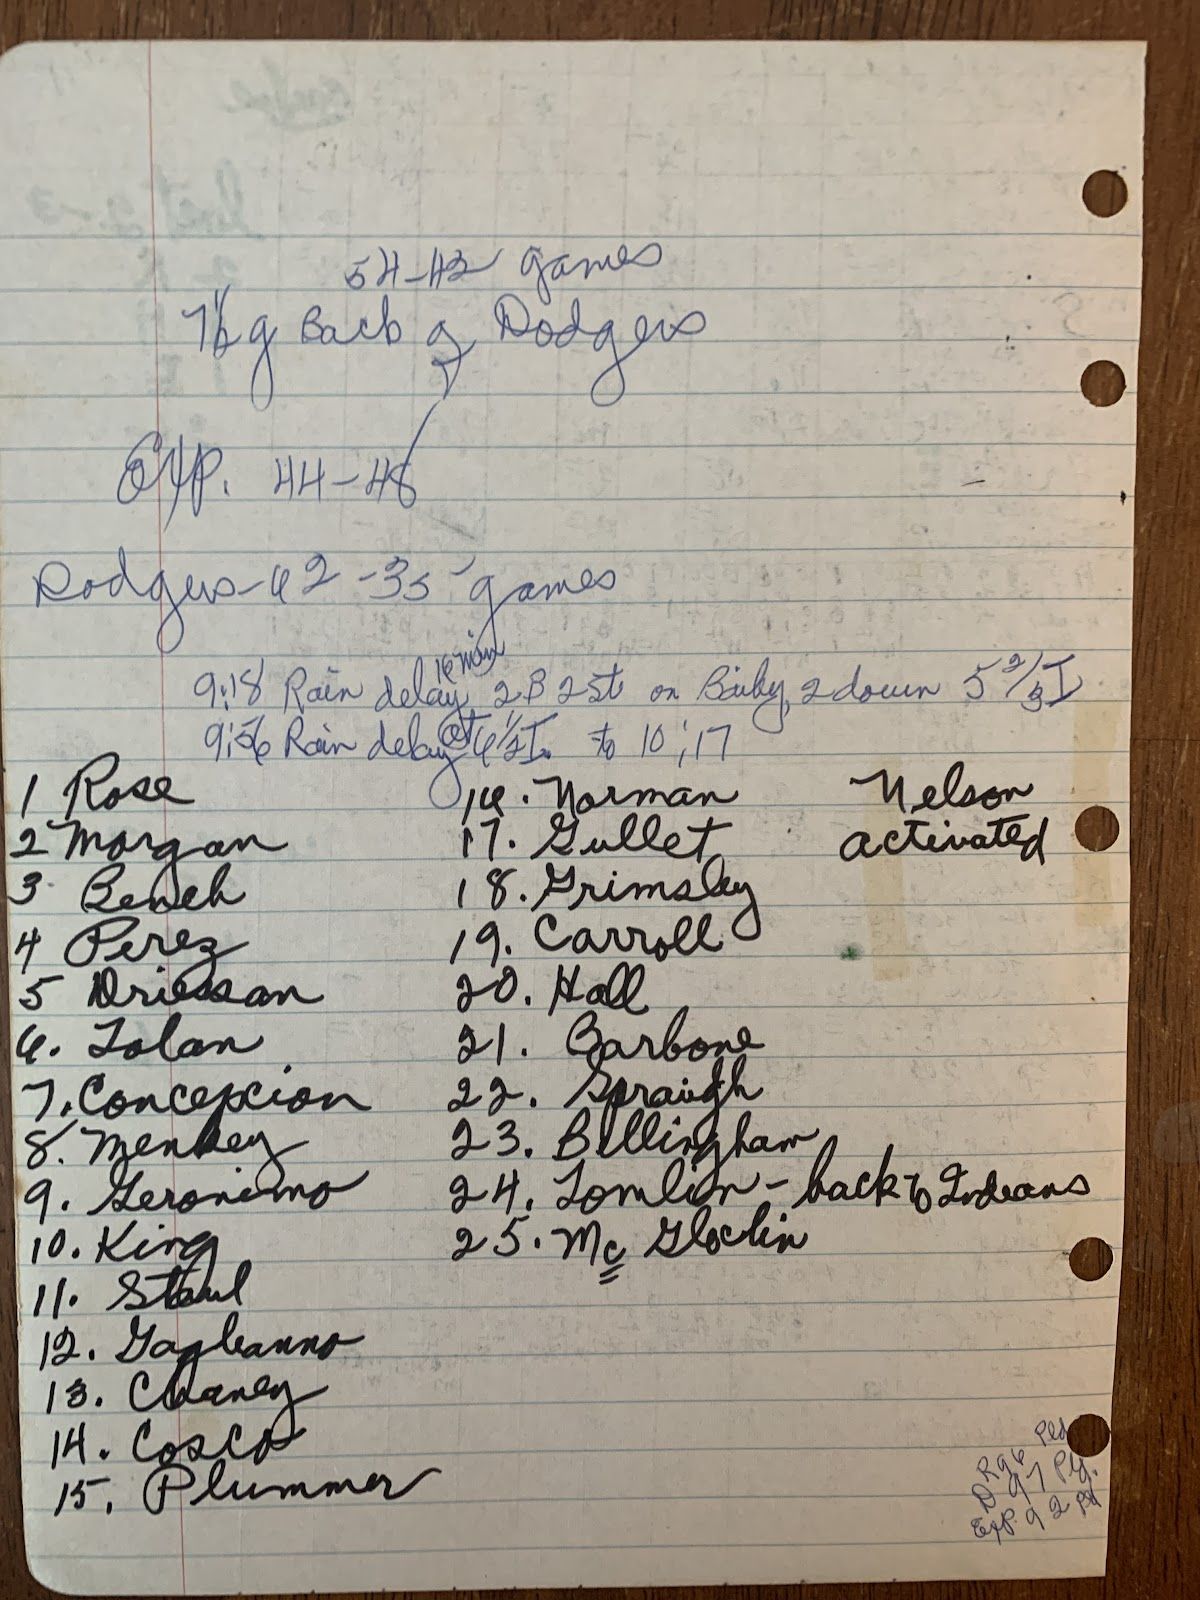 54-42 games
7½ g Back of Dodgers
Exp. 44-48
Dodgers-62-35 games
9:18 Rain delay 16 min 2B 2St on Baily, 2 down 5 2/3 I
9:56 Rain delay @ 6½ I. to 10:17
1 Rose
2 Morgan
3 Bench
4 Perez
5 Driessan
6. Tolan
7. Concepcion
8. Menkey
9. Geronimo
10. King
11. Stahl
12. Gagleanno
13. Chaney
14. Cosco
15. Plummer
16. Norman
17. Gullet
18. Grimsley
19. Carroll
20. Hall
21. Barbone
22. Spraugh
23. Billingham
24. Tomlin - back to Indeans
25. Mc Gloclin
Nelson
activated
R 96 Pld
D 97 Plg.
Exp. 92 Pd